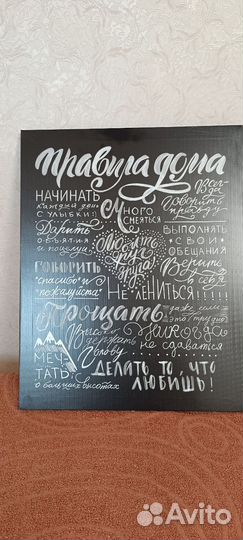 Правила дома
НАЧИНАТЬ
каждый день
С УЛЫБКИ!
Много
смеяться
Всегда
Говорить
правду
Дарить
объятия
и поцелуи
Любить
друг
друга!
ВЫПОЛНЯТЬ
СВОИ
ОБЕЩАНИЯ
ГОВОРИТЬ
"спасибо" и
"пожалуйста"
Верить
в себя
Не ЛЕНИТЬСЯ!!!
Прощать
даже если
это трудно
Высоко
держать
голову
Никогда
не сдаваться
МЕЧ-
ТАТЬ
о больших высотах
ДЕЛАТЬ ТО, ЧТО
ЛЮБИШЬ!
Avito